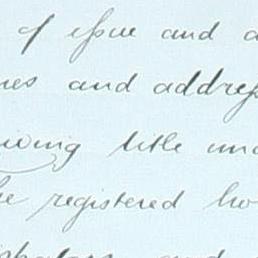 of issue and a
es and address
wing title und
he registered ho
and